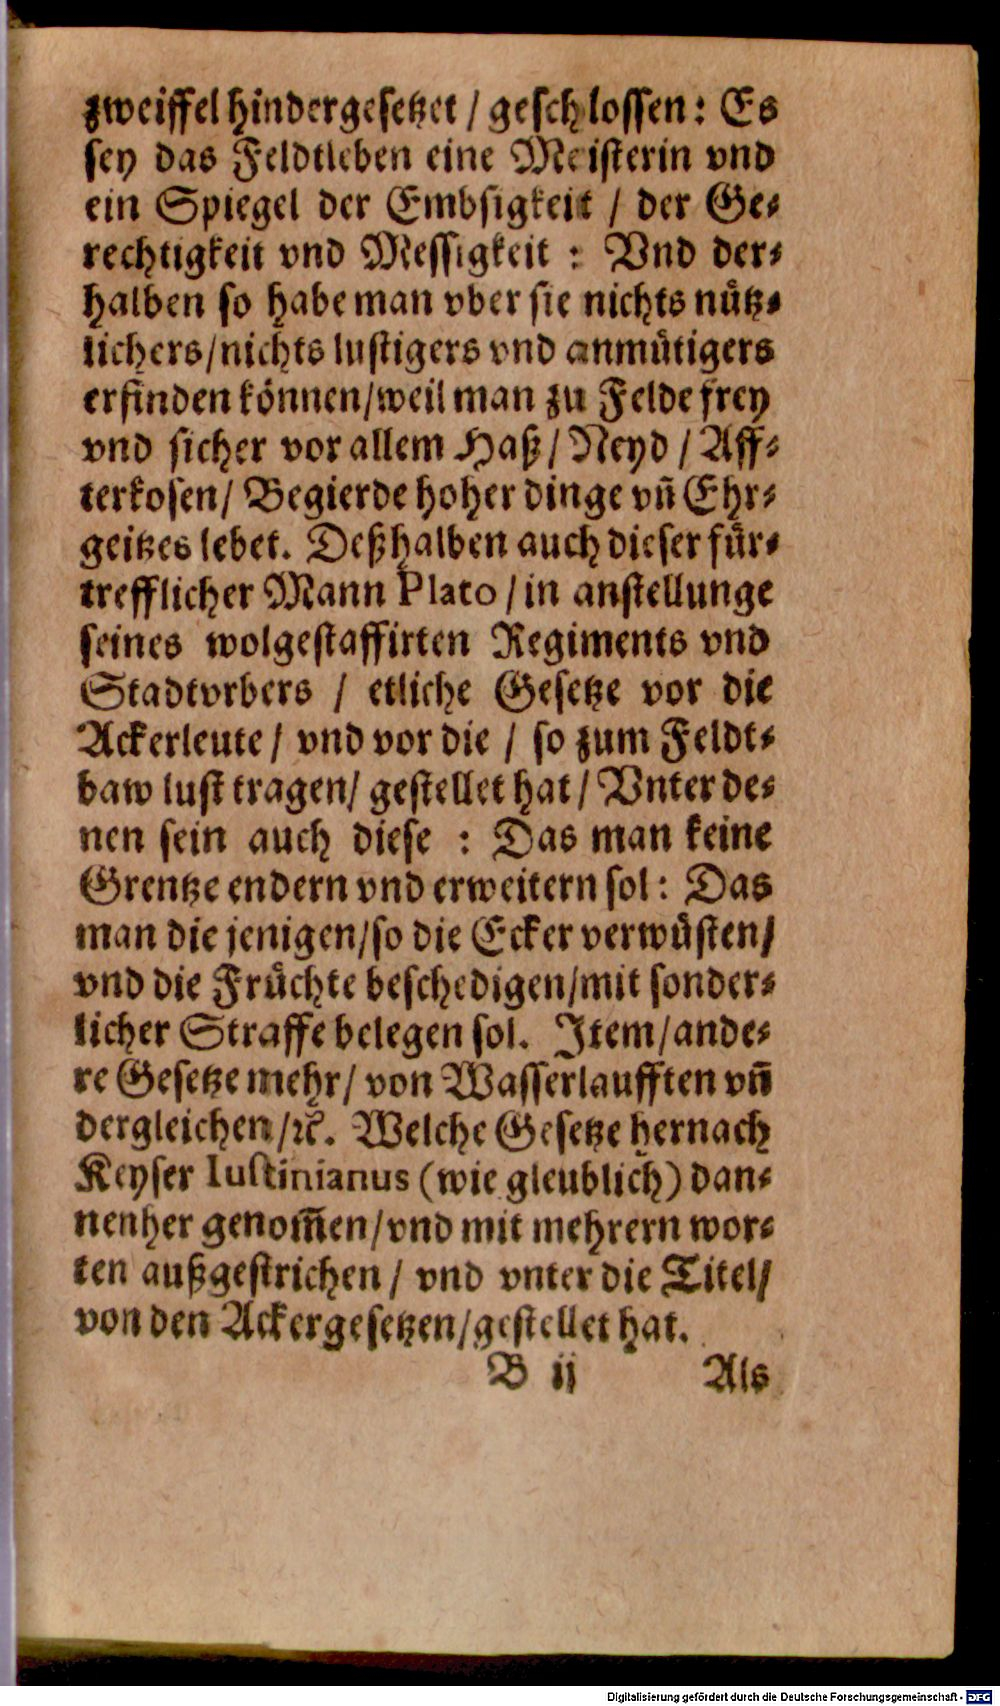 zweiffel hindergesetzet / geschlossen: Es
sey das Feldtleben eine Meisterin vnd
ein Spiegel der Embsigkeit / der Ge-
rechtigkeit vnd Messigkeit : Vnd der-
halben so habe man vber sie nichts nütz-
lichers/nichts lustigers vnd anmütigers
erfinden können/weil man zu Felde frey
vnd sicher vor allem Haß/ Neyd / Aff-
terkosen/ Begierde hoher dinge vn̄ Ehr-
geitzes lebet. Deßhalben auch dieser für-
trefflicher Mann Plato / in anstellunge
seines wolgestaffirten Regiments vnd
Stadtvrbers / etliche Gesetze vor die
Ackerleute / vnd vor die / so zum Feldt-
baw lust tragen/ gestellet hat / Vnter de-
nen sein auch diese : Das man keine
Grentze endern vnd erweitern sol: Das
man die jenigen/so die Ecker verwüsten/
vnd die Früchte beschedigen/mit sonder-
licher Straffe belegen sol. Item/ande-
re Gesetze mehr/ von Wasserlaufften vn̄
dergleichen/ꝛc̄. Welche Gesetze hernach
Keyser Iustinianus (wie gleublich) dan-
nenher genom̄en/vnd mit mehrern wor-
ten außgestrichen / vnd vnter die Titel/
von den Ackergesetzen/gestellet hat.
B ij Als
Digitalisierung gefördert durch die Deutsche Forschungsgemeinschaft - DFG